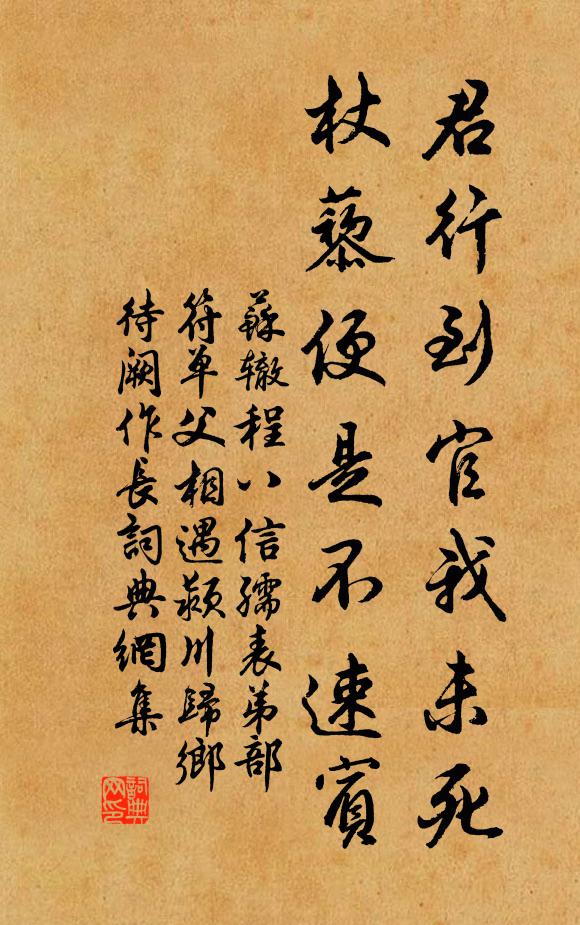 君行到官我未死
杖藜便是不速賓
蘇辙程八信孺表弟部
符单父相遇颍川歸鄉
待阙作長詞典網集
詞典网印